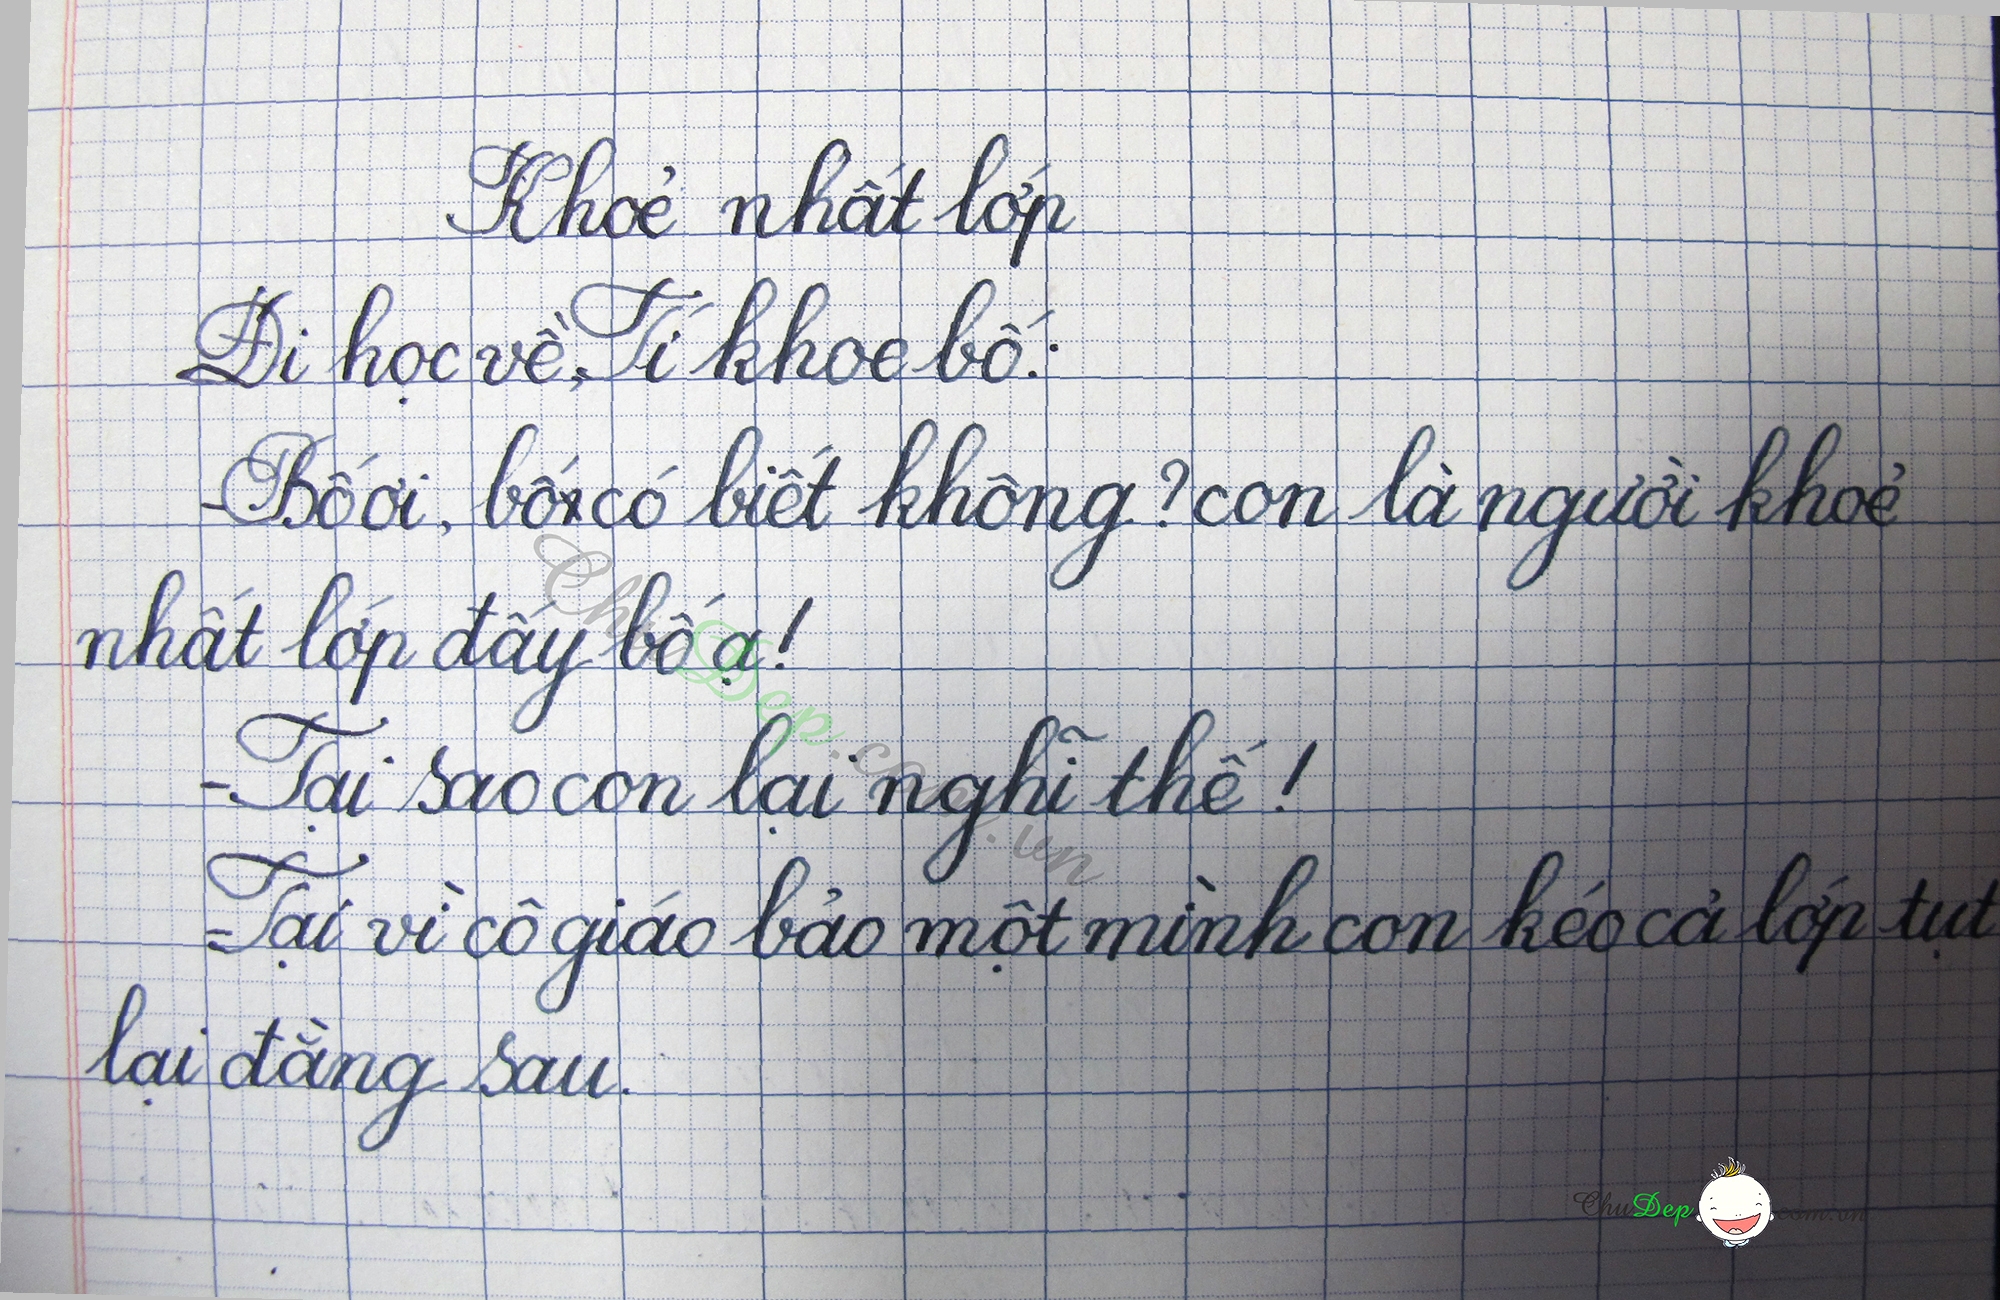 Khoẻ nhất lớp
Đi học về, Tí khoe bố:
-Bố ơi, bố có biết không? con là người khoẻ
nhất lớp đấy bố ạ!
-Tại sao con lại nghĩ thế!
-Tại vì cô giáo bảo một mình con kéo cả lớp tụt
lại đằng sau.
ChuDep.com.vn
ChuDep.com.vn